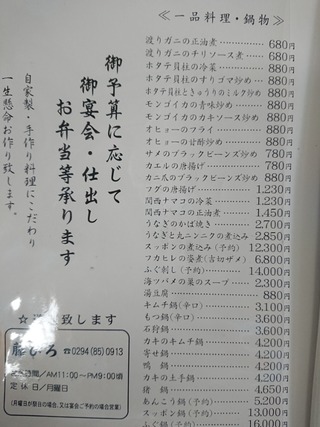 ≪一品料理・鍋物≫
渡りガニの正油煮 680円
渡りガニのチリソース煮 680円
ホタテ貝柱の冷菜 880円
ホタテ貝柱のすりゴマ炒め 880円
ホタテ貝柱ときゅうりのミルク炒め 880円
モンゴイカの青味炒め 880円
モンゴイカのカキソース炒め 880円
オヒョーのフライ 880円
オヒョーの甘酢炒め 880円
サメのブラックビーンズ炒め 780円
カエルの唐揚げ 780円
カニ爪のブラックビーンズ炒め 880円
フグの唐揚げ 1,230円
関西ナマコの冷菜 1,230円
関西ナマコの正油煮 1,450円
うなぎのかば焼き 2,700円
うなぎと丸ニンニクの煮込 2,850円
スッポンの煮込み(予約) 12,300円
フカヒレの姿煮(吉切ザメ) 6,800円
ふぐ刺し(予約) 14,000円
海ツバメの巣のスープ 2,300円
湯豆腐 880円
キムチ鍋(辛口) 3,100円
もつ鍋(辛口) 3,600円
石狩鍋 3,600円
カキのキムチ鍋 4,200円
寄せ鍋 4,200円
鴨鍋 4,200円
カキの土手鍋 4,200円
猪鍋 4,650円
あんこう鍋(予約) 5,200円
スッポン鍋(予約) 13,000円
ふぐ鍋(予約) 16,000円
御予算に応じて
御宴会・仕出し
お弁当等承ります
自家製・手作り料理にこだわり
一生懸命お作り致します。
致します
☎0294(85)0913
時間/AM11:00〜PM9:00頃
定休日/月曜日
(月曜日が祭日の場合、又は宴会ご予約の場合営業)